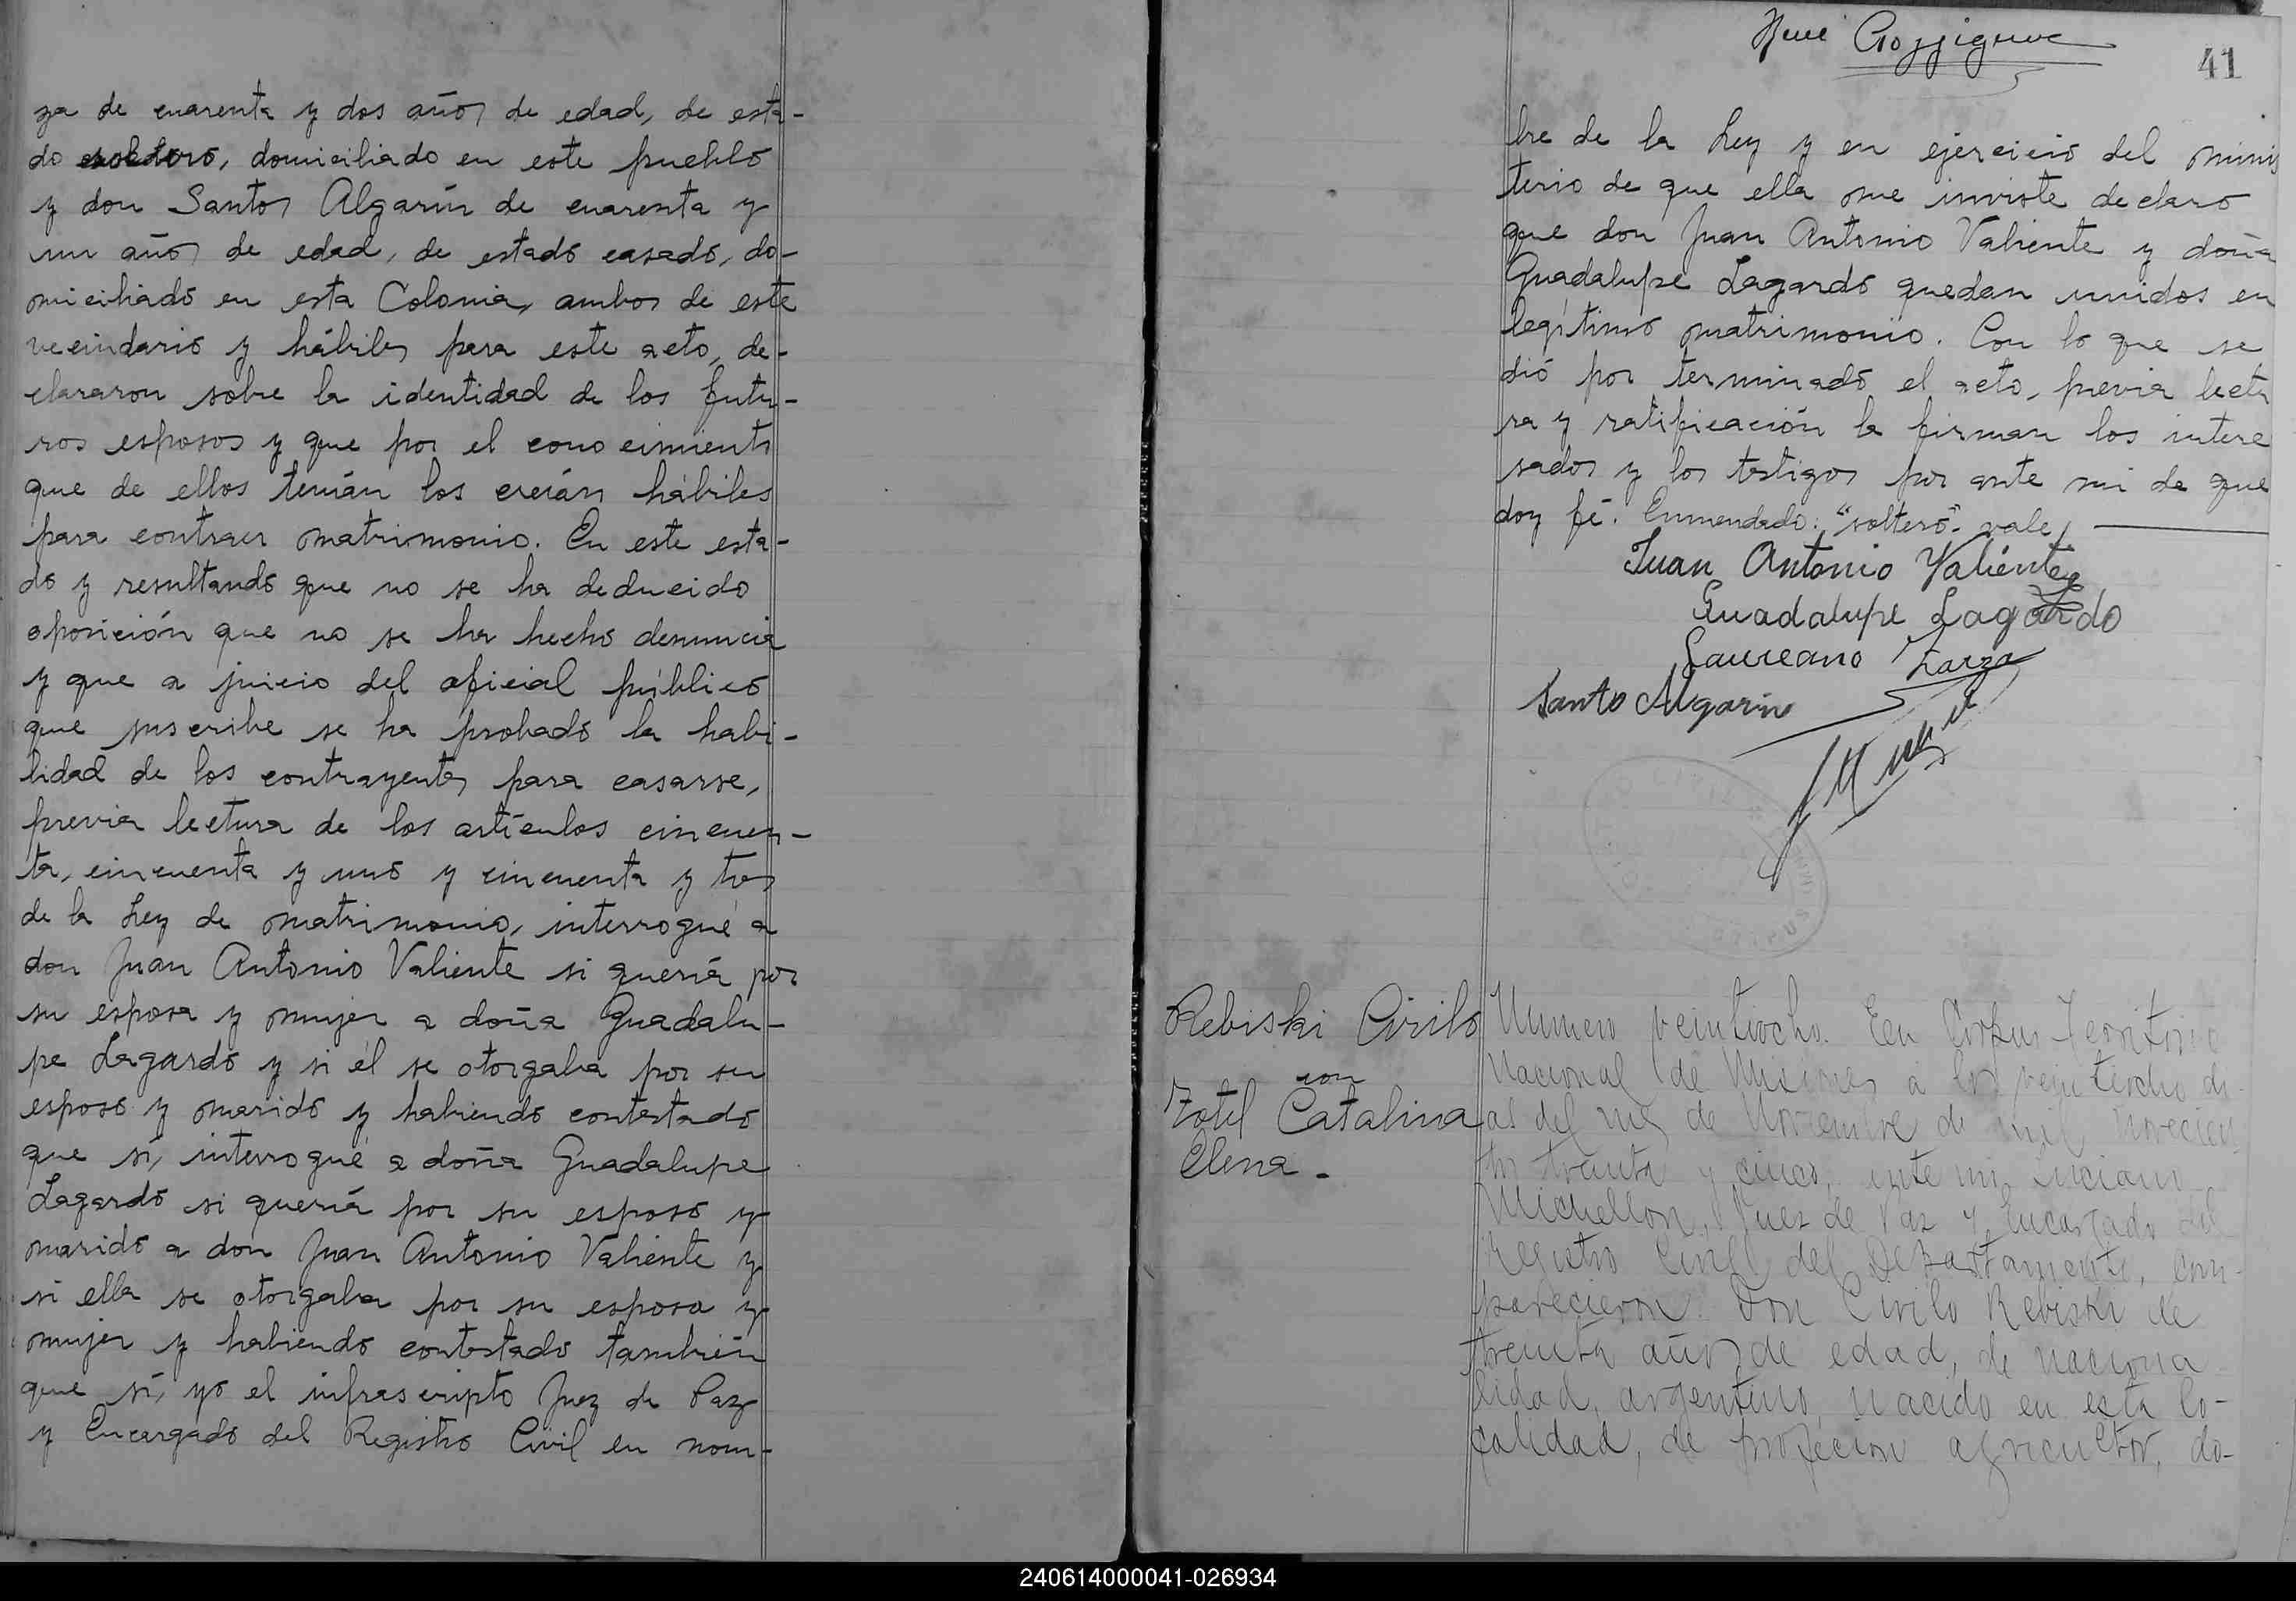 za de cuarenta y dos años de edad, de esta-
do soltero, domiciliado en este pueblo
y don Santos Algarín de cuarenta y
un años de edad, de estado casado, do-
miciliado en esta Colonia, ambos de este
vecindario y hábiles para este acto, de-
clararon sobre la identidad de los futu-
ros esposos y que por el conocimiento
que de ellos tenían los creían hábiles
para contraer matrimonio. En este esta-
do y resultando que no se ha deducido
oposición que no se ha hecho denuncia
y que a juicio del oficial público
que suscribe se ha probado la habi-
lidad de los contrayentes para casarse,
previa lectura de los artículos cincuen-
ta, cincuenta y uno y cincuenta y tres
de la Ley de matrimonio, interrogué a
don Juan Antonio Valiente si quería por
su esposa y mujer a doña Guadalu-
pe Lagardo y si él se otorgaba por su
esposo y marido y habiendo contestado
que sí, interrogué a doña Guadalupe
Lagardo si quería por su esposo y
marido a don Juan Antonio Valiente y
si ella se otorgaba por su esposa y
mujer y habiendo contestado también
que sí, yo el infrascripto Juez de Paz
y Encargado del Registro Civil en nom-
41
bre de la Ley y en ejercicio del minis
terio de que ella me inviste declaro
que don Juan Antonio Valiente y doña
Guadalupe Lagardo quedan unidos en
legítimo matrimonio. Con lo que se
dió por terminado el acto, previa lectu
ra y ratificación la firman los intere
sados y los testigos por ante mi de que
doy fé. Enmendado: "soltero" vale
Juan Antonio Valiente
Guadalupe Lagardo
Laureano Zarza
Santo Algarin
Rebiski Cirilo
con
Zotel Catalina
Elena.-
Numero veintiocho. En Corpus Territorio
Nacional de Misiones a los veintiocho di-
as del mes de Noviembre de mil novecien
tos treinta y cinco, ante mi Luciano
Michellon, Juez de Paz y Encargado del
Registro Civil del Departamento, com-
parecieron: Don Cirilo Rebiski de
treinta años de edad, de naciona
lidad, argentino, nacido en esta lo-
calidad, de profecion agricultor, do-
240614000041-026934